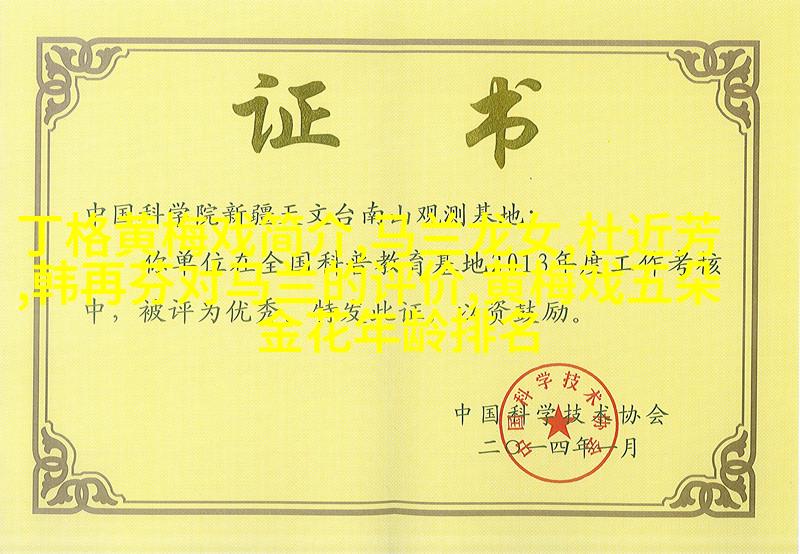 证 书
中国科学院新疆天文台南山观测基地:
丁格黄梅戏简介,马兰龙女,杜近芳
你单位在全国科普教育基地2013年度工作考核
,韩再芬对马兰的评价,黄梅戏五朵
中，被评为优秀，特发此证，以资鼓励。
金花年龄排名
中国科学技术协会
二〇一四年一月
中国科学技术协会